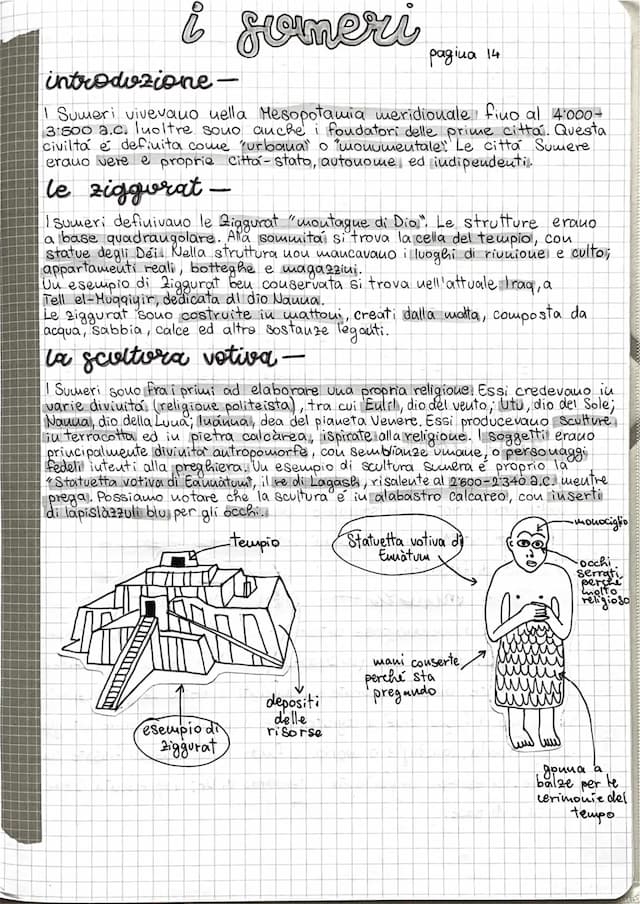 i sumeri
pagina 14
introduzione —
I Sumeri vivevano nella Mesopotamia meridionale fino al 4'000-
3'500 a.C. Inoltre sono anche i fondatori delle prime città. Questa
civiltà è definita come "urbana" o "monumentale". Le città Sumere
erano vere e proprie città-stato, autonome ed indipendenti.
le ziggurat —
I sumeri definivano le Ziggurat "montagne di Dio". Le strutture erano
a base quadrangolare. Alla sommità si trova la cella del tempio, con
statue degli Dèi. Nella struttura non mancavano i luoghi di riunione e culto,
appartamenti reali, botteghe e magazzini.
Un esempio di Ziggurat ben conservata si trova nell'attuale Iraq, a
Tell el-Muqqiyir, dedicata al dio Nanna.
Le ziggurat sono costruite in mattoni, creati dalla malta, composta da
acqua, sabbia, calce ed altre sostanze leganti.
la scultura votiva —
I Sumeri sono fra i primi ad elaborare una propria religione. Essi credevano in
varie divinità (religione politeista), tra cui Enlil, dio del vento; Utu, dio del Sole;
Nanna, dio della Luna; Inanna, dea del pianeta Venere. Essi producevano sculture
in terracotta ed in pietra calcarea, ispirate alla religione. I soggetti erano
principalmente divinità antropomorfe, con sembianze umane, o personaggi
fedeli intenti alla preghiera. Un esempio di scultura sumera è proprio la
"Statuetta votiva di Eannatum", il re di Lagash, risalente al 2'600-2'340 a.C. mentre
prega. Possiamo notare che la scultura è in alabastro calcareo, con inserti
di lapislàzzuli blu per gli occhi.
tempio
esempio di
ziggurat
depositi
delle
risorse
Statuetta votiva di
Ennatum
monociglio
occhi
serrati,
perché
molto
religioso
mani conserte
perché sta
pregando
gonna a
balze per le
cerimonie del
tempo